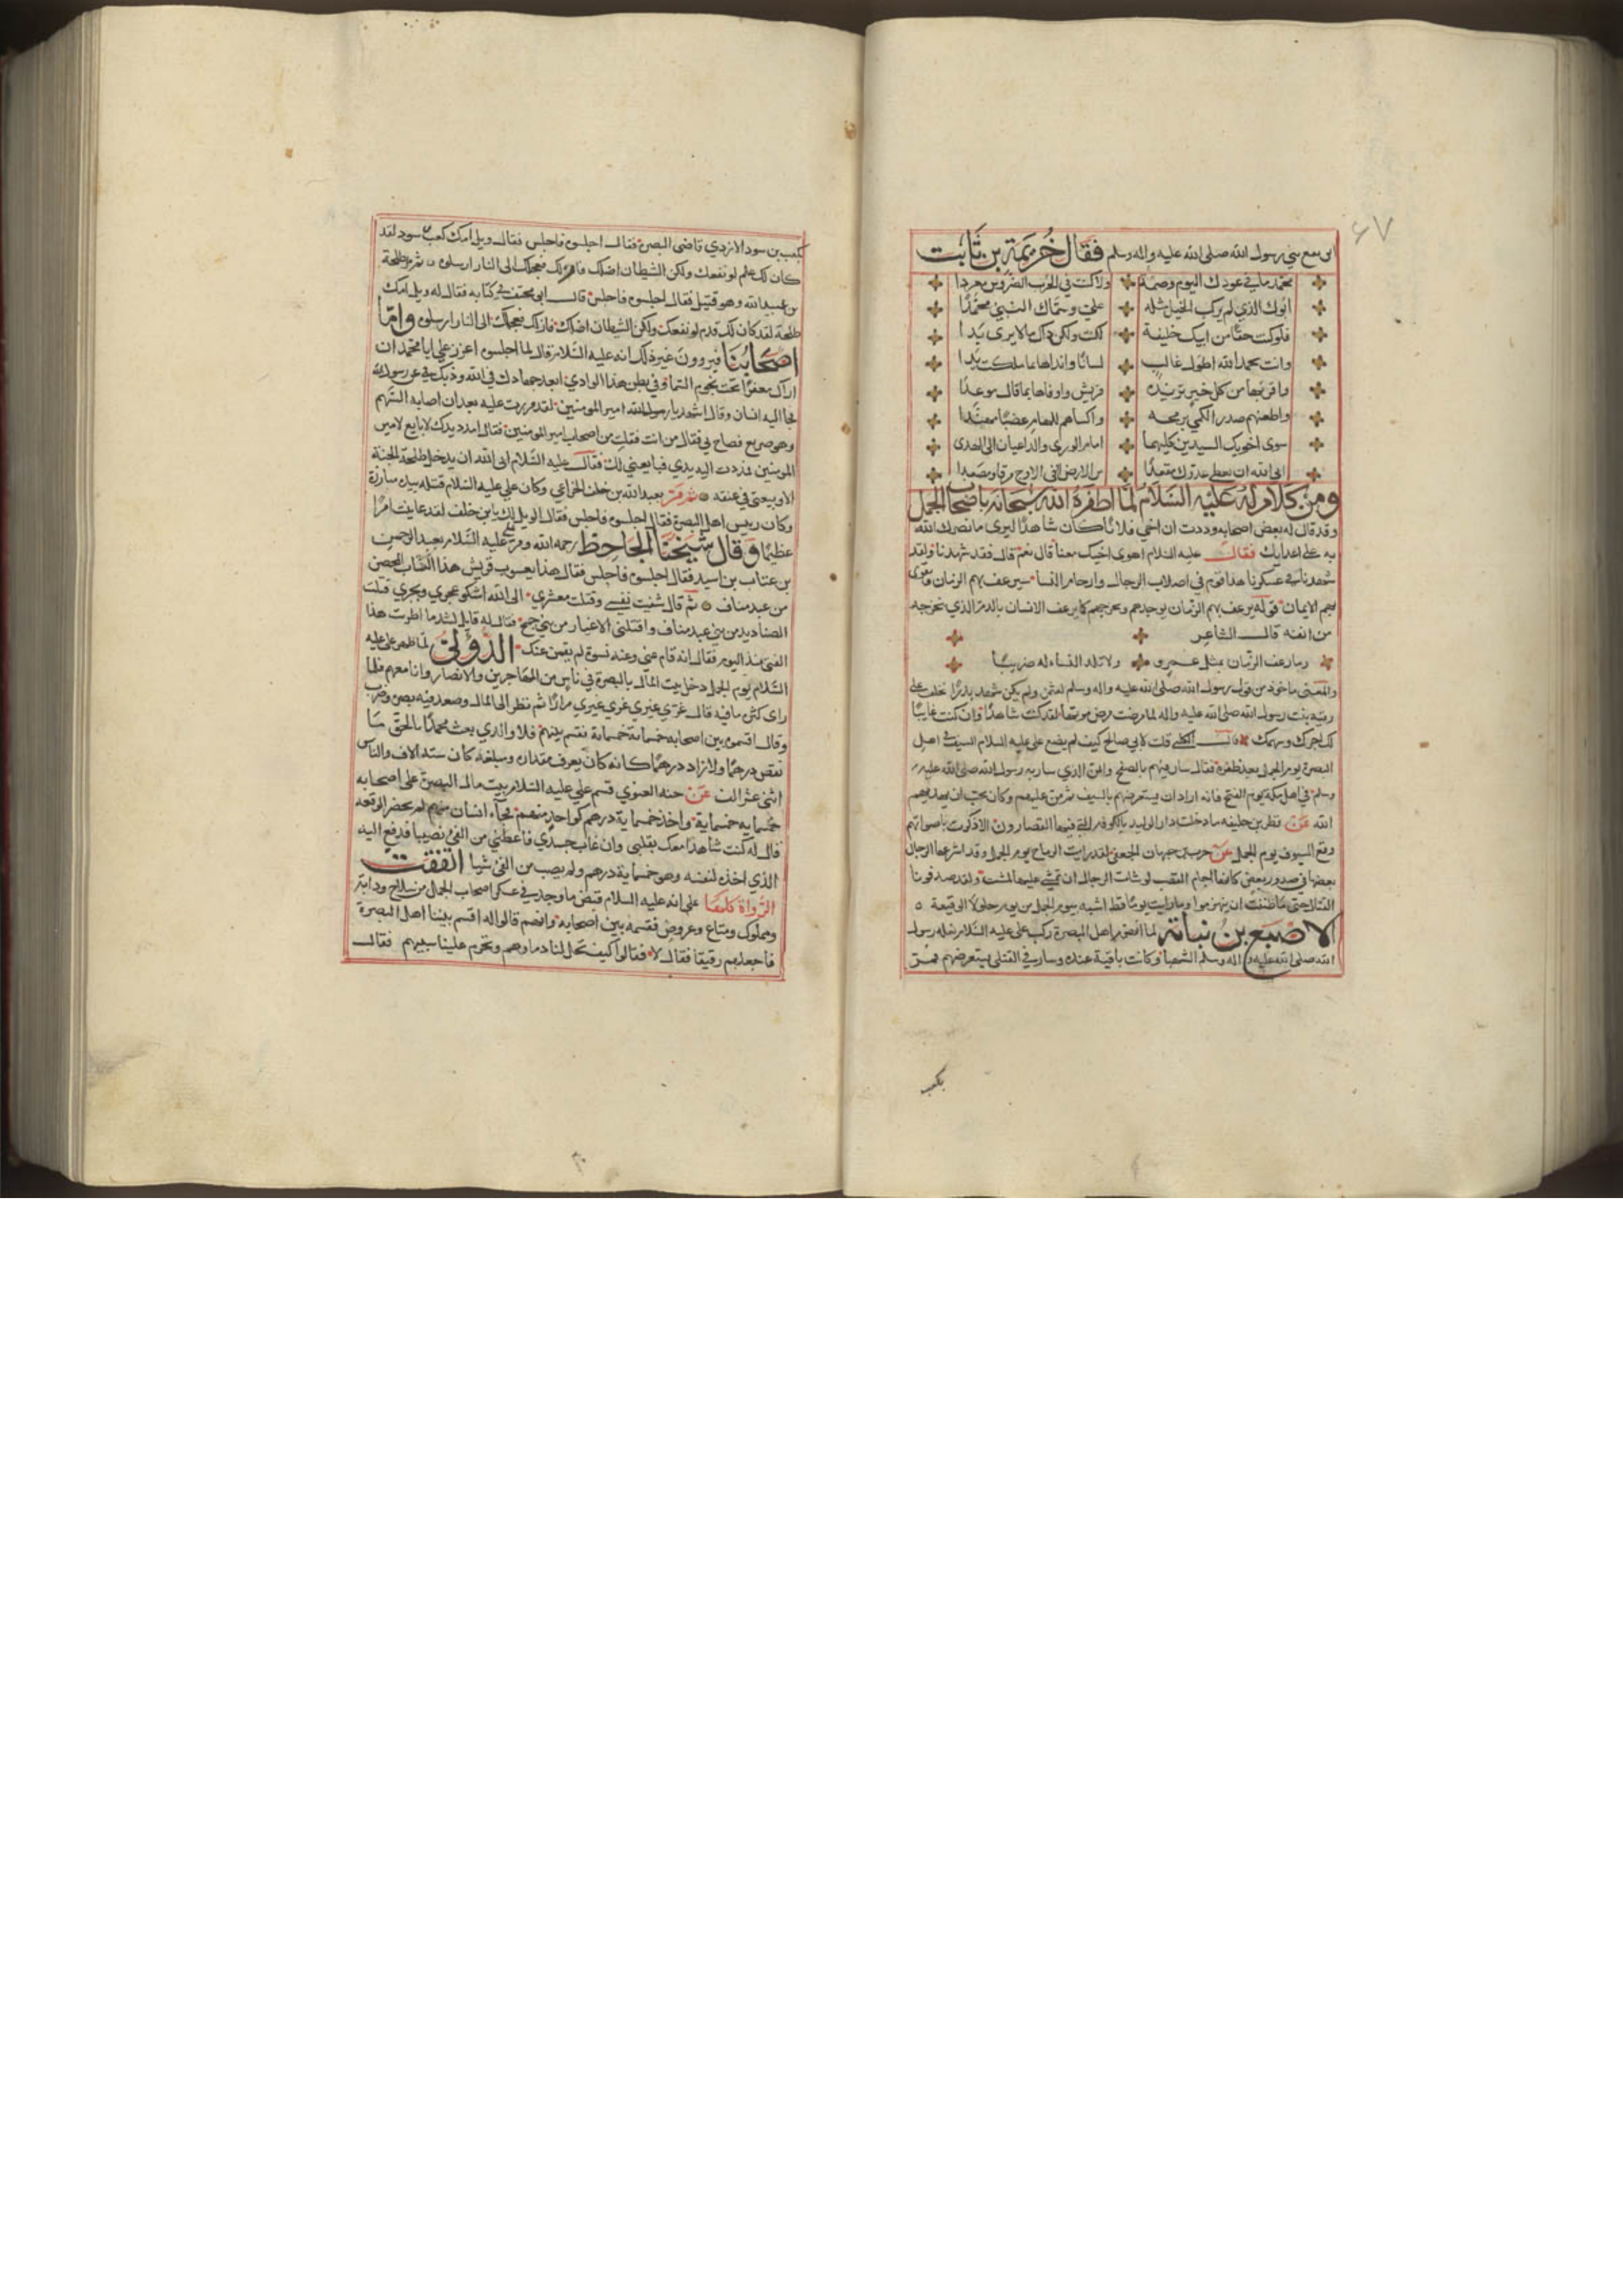 ٤٧
ابن مع بني رسول الله صلى الله عليه واله وسلم فقال خزيمة بن ثابت
محمد ما في عودك اليوم وصمة ولا كنت في الحرب الضروس معردا
ابوك الذي لم يركب الخيل مثله علي وسماك النبي محمدا
فلو كنت حقا من ابيك خليفة لكنت ولكن ذاك ما لا يرى بدا
وانت بحمد الله اطول غالب لسانا وانداها بما ملكت يدا
واقربها من كل خير تريده قريش واوفاها بما قال موعدا
واطعنهم صدر الكمي برمحه واكساهم للهام عضبا مهندا
سوى اخويك السيدين كليهما امام الورى والداعيان الى الهدى
ابى الله ان يعطي عدوك مقعدا من الارض او في الاوج مرقا ومصعدا
ومن كلام له عليه السلام لما اظفره الله سبحانه باصحاب الجمل
وقد قال له بعض اصحابه وددت ان اخي فلانا كان شاهدا ليرى ما نصرك الله
به على اعدايك فقال عليه السلام اهوى اخيك معنا قال نعم قال فقد شهدنا ولقد
شهدنا في عسكرنا هذا قوم في اصلاب الرجال وارحام النسا سيرعف بهم الزمان ويقوى
بهم الايمان قوله يرعف بهم الزمان يوجدهم ويخرجهم كما يرعف الانسان بالدم الذي يخرجه
من انفه قال الشاعر
وما رعف الزمان بمثل عمرو ولا تلد النساء له ضريبا
والمعنى ماخوذ من قول رسول الله صلى الله عليه واله وسلم لعثمن ولم يكن شهد بدرا تخلف على
رقيه بنت رسول الله صلى الله عليه واله لما مرضت مرض موتها لقد كنت شاهدا وان كنت غايبا
لك اجرك وسهمك قال الكلبي قلت لابي صالح كيف لم يضع علي عليه السلام السيف في اهل
البصرة يوم الجمل بعد ظفره فقال سار فيهم بالصفح والمن الذي سار به رسول الله صلى الله عليه
وسلم في اهل مكة يوم الفتح فانه اراد ان يستعرضهم بالسيف ثم من عليهم وكان يحب ان يهديهم
الله عن فطر بن خليفه ما دخلت دار الوليد بالكوفه التي فيها القصارون الا ذكرت باصواتهم
وقع السيوف يوم الجمل عن حرب بن جيهان الجعفي لقد رايت الرماح يوم الجمل وقد اشرعها الرجال
بعضها في صدور بعض كانها اجام القصب لو شات الرجال ان تمشي عليها لمشت ولقد صدقونا
القتال حتى ما ظننت ان ينهزموا وما رايت يوما قط اشبه بيوم الجمل من يوم جلولا الوقيعة
الاصبغ بن نباتة لما انهزم اهل البصرة ركب علي عليه السلام بغله رسول
الله صلى الله عليه واله وسلم الشهبا وكانت باقية عنده وسار في القتلى يستعرضهم فمر
بكعب
بكعب بن سور الازدي قاضي البصرة فقال اجلسوه فاجلس فقال ويل امك كعب سور لقد
كان لك علم لو نفعك ولكن الشيطان اضلك فازلك فعجلك الى النار ارسلوه ثم مر بطلحة
بن عبيد الله وهو قتيل فقال اجلسوه فاجلس قال ابو مخنف في كتابه فقال له ويل امك
طلحة لقد كان لك قدم لو نفعك ولكن الشيطان اضلك فازلك فعجلك الى النار ارسلوه واما
اصحابنا فيروون غير ذلك انه عليه السلام قال لما اجلسوه اعزز علي ابا محمد ان
اراك معفرا تحت نجوم السما وفي بطن هذا الوادي ابعد جهادك في الله وذبك عن رسول الله
فجا اليه انسان وقال اشهد يا امير المومنين لقد مررت عليه بعد ان اصابه السهم
وهو صريع فصاح بي فقال من انت فقلت من اصحاب امير المومنين فقال امدد يدك لابايع لامير
المومنين فمددت اليه يدي فبايعني لك فقال عليه السلام ابى الله ان يدخل طلحة الجنة
الا وبيعتي في عنقه ثم مر بعبد الله بن خلف الخزاعي وكان علي عليه السلام قتله بيده مبارزة
وكان ريس اهل البصرة فقال اجلسوه فاجلس فقال الويل لك يا بن خلف لقد عاينت امرا
عظيما وقال شيخنا الجاحظ رحمه الله ومر علي عليه السلام بعبد الرحمن
بن عتاب بن اسيد فقال اجلسوه فاجلس فقال هذا يعسوب قريش هذا اللباب المحض
من عبد مناف ثم قال شفيت نفسي وقتلت معشري الى الله اشكو عجري وبجري قتلت
الصناديد من بني عبد مناف وافلتني الاعيار من بني جمح فقال له قايل لشد ما اطريت هذا
الفتى منذ اليوم فقال انه قام عني وعنه نسوة لم يقمن عنك الدؤلي لما ظهر علي عليه
السلام يوم الجمل دخل بيت المال بالبصرة في ناس من المهاجرين والانصار وانا معهم فلما
راى كثرة ما فيه قال غري غيري غري غيري مرارا ثم نظر الى المال وصعد فيه بصره وصوب
وقال اقسموه بين اصحابه خمسماية خمسماية فقسم بينهم فلا والذي بعث محمدا بالحق ما
نقص درهما ولا زاد درهما كانه كان يعرف مقداره ومبلغه كان ستة الاف والناس
اثنى عشر الف عن حبه العرني قسم علي عليه السلام بيت مال البصرة على اصحابه
خمسمايه خمسماية واخذ خمسماية درهم كواحد منهم فجاء انسان منهم لم يحضر الوقعه
قال له كنت شاهدا معك بقلبي وان غاب جسدي فاعطني من الفئ نصيبا فدفع اليه
الذي اخذه لنفسه وهو خمسماية درهم ولم يصب من الفئ شيا اتفقت
الرواة كلها على انه عليه السلام قبض ما وجد في عسكر اصحاب الجمل من سلاح ودابة
ومملوك ومتاع وعروض فقسمه بين اصحابه وانهم قالوا له اقسم بيننا اهل البصرة
فاجعلهم رقيقا فقال لا فقالوا كيف تحل لنا دماوهم وتحرم علينا سبيهم فقال